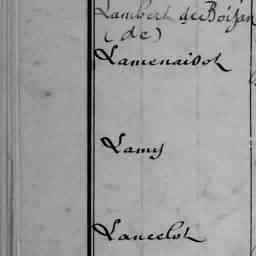 Lambert de Boisjan
(de)
Lamenaidot
Lamy
Lancelot